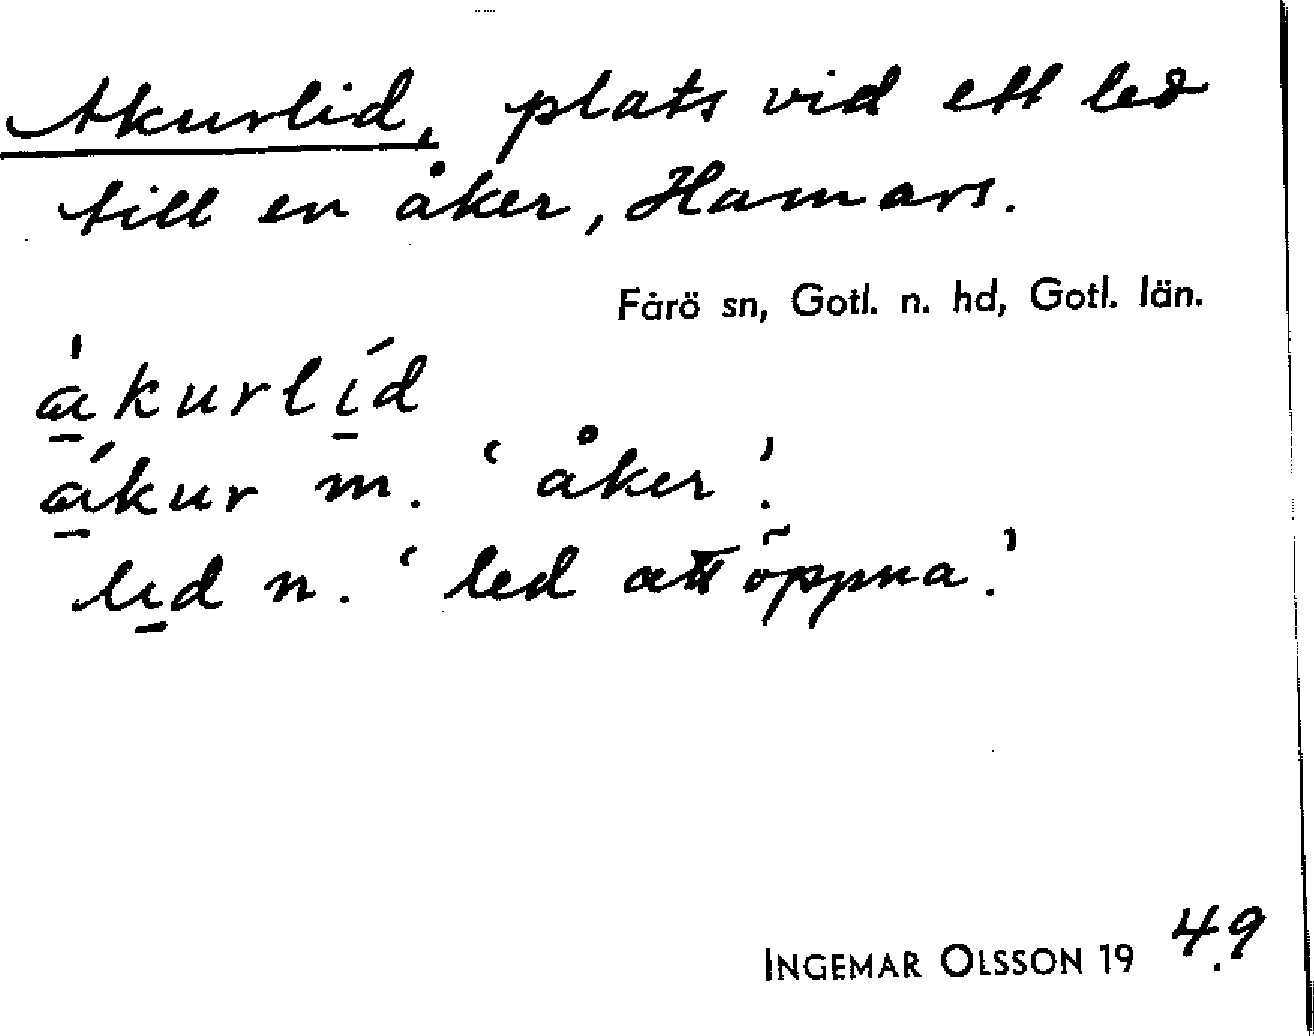 Akurlid, plats vid ett led
till en åker, Hammars.
Fårö sn, Gotl. n. hd, Gotl. län.
ákurlíd
ákur m. ‘åker’.
lid n. ‘led att öppna.’
INGEMAR OLSSON 1949.